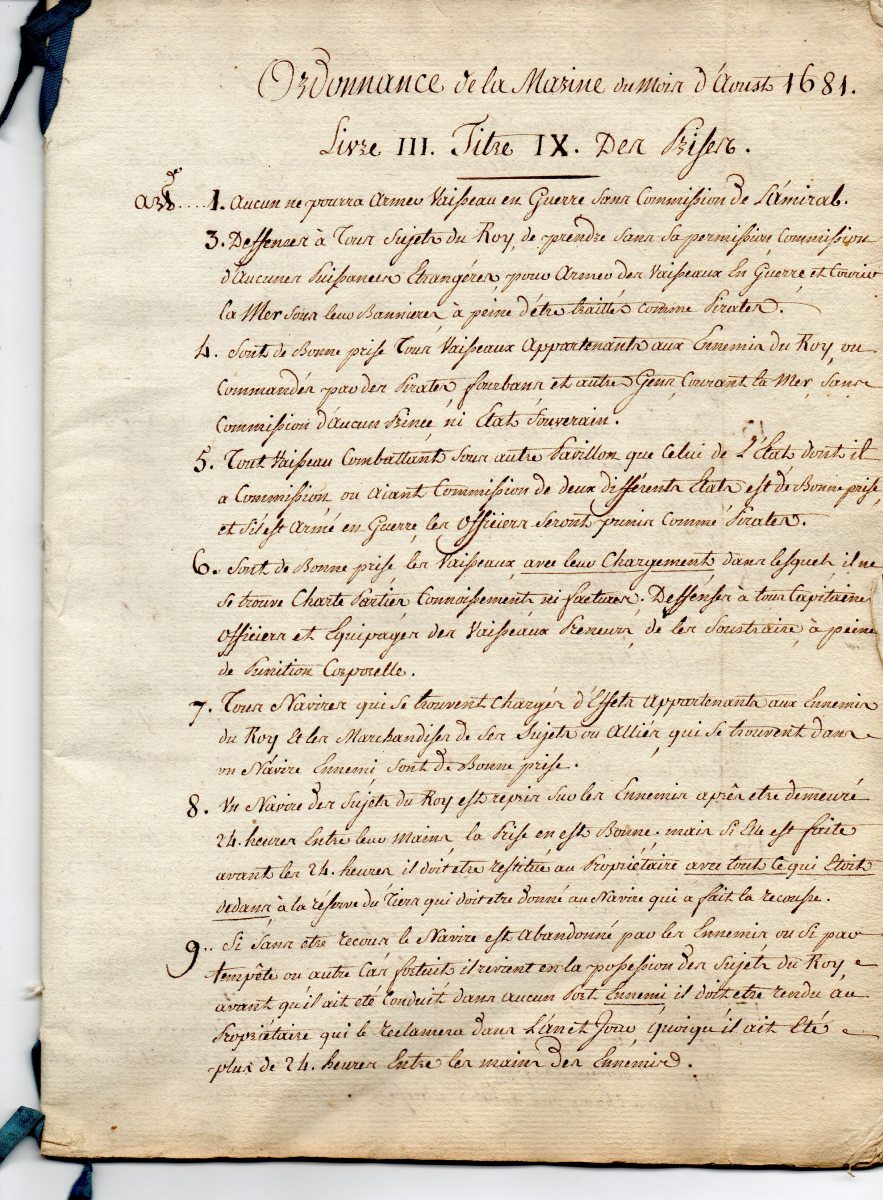 Ordonnance de la Marine du Mois d'Aoust 1681.
Livre III. Titre IX. Des Prises.
art. .... 1. Aucun ne pourra Armer Vaisseau en Guerre sans Commission de L'amiral.
3. Deffenses à Tous Sujets du Roy, de prendre sans sa permission Commission
d'Aucunes Puissances Etrangéres, pour Armer des Vaisseaux En Guerre et Courir
la Mer sous leur Bannieres à peine d'être traittés comme Pirates.
4. Sont de Bonne prise Tous Vaisseaux Appartenants aux Ennemis du Roy, ou
Commandés par des Pirates, forbans et autre Gens Courant la Mer, sans
Commission d'aucun Prince ni Etat Souverain.
5. Tout Vaisseau Combattant sous autre Pavillon que Celui de L'État dont il
a Commission, ou aiant Commission de deux différents Etats est de Bonne prise,
et s'il est Armé en Guerre, les Officiers seront punis Comme Pirates.
6. Sont de Bonne prise les Vaisseaux avec leur Chargement dans lesquels il ne
se trouve Charte Parties Connoissements ni factures. Deffenses à tous Capitaines
Officiers et Equipages des Vaisseaux Preneurs, de les Soustraire, à peine
de Punition Corporelle.
7. Tous Navires qui se trouvent Chargés d'Effets Appartenants aux Ennemis
du Roy Et les Marchandises de ses Sujets ou Alliés, qui se trouvent dans
un Navire Ennemi sont de Bonne prise.
8. Un Navire des Sujets du Roy est repris sur les Ennemis après etre demeuré
24. heures Entre leur mains, la Prise en est Bonne. mais si Elle est faite
avant les 24. heures il doit etre restitué au Propriétaire avec tout Ce qui Etoit
dedans, à la réserve du Tiers qui doit etre donné au Navire qui a fait la recousse.
9.. Si sans etre recous le Navire est abandonné par les Ennemis ou si par
tempête ou autre Cas fortuit il revient en la possession des Sujets du Roy
avant qu'il ait été Conduit dans aucun Port Ennemi, il doit etre rendu au
Propriétaire qui le reclamera dans L'an et Jour, quoiqu'il ait Eté
plus de 24. heures Entre les mains des Ennemis.